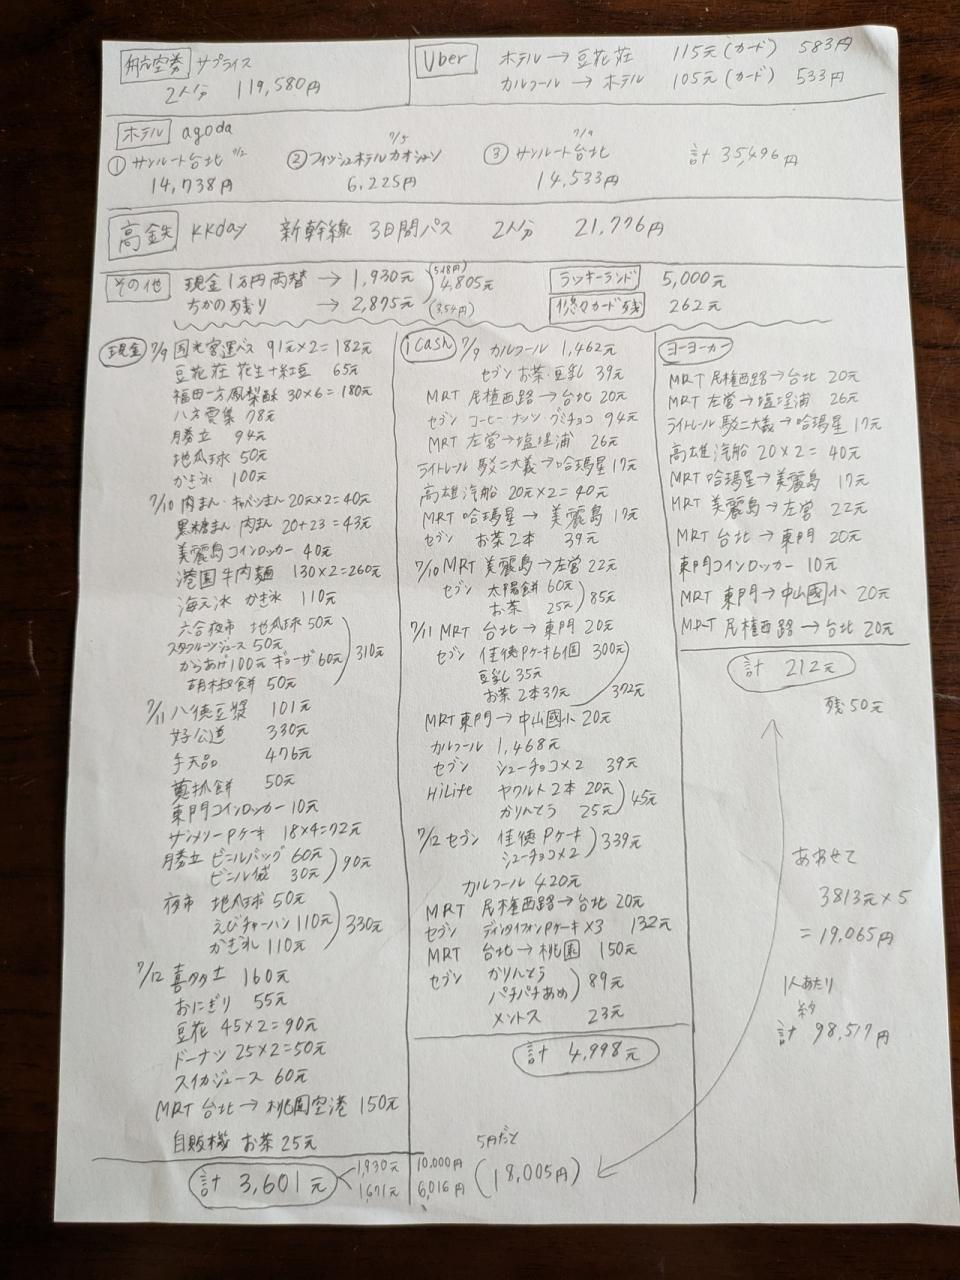 航空券 サプライス
2人分 119,580円
Uber ホテル→豆花荘 115元(カード) 583円
カルフール→ホテル 105元(カード) 533円
ホテル agoda
① サンルート台北 9/2
14,738円
② フィッシュホテルカオシュン 7/5
6,225円
③ サンルート台北 7/9
14,533円
計 35,496円
高鉄 KKday 新幹線 3日間パス 2人分 21,776円
その他 現金1万円両替 → 1,930元 (5.18円)
ちかの残り → 2,875元 (3.54円)
4,805元
ラッキーランド 5,000元
悠々カード残 262元
現金 7/9 国光客運バス 91元×2=182元
豆花荘 花生+紅豆 65元
福田一方鳳梨酥 30×6=180元
八方雲集 78元
月勝立 94元
地瓜球 50元
かき氷 100元
7/10 肉まん・キャベツまん 20元×2=40元
黒糖まん 肉まん 20+23=43元
美麗島コインロッカー 40元
港園牛肉麺 130×2=260元
海之冰 かき氷 110元
六合夜市 地瓜球 50元
スタフルーツジュース 50元
からあげ100元 ギョーザ 60元
胡椒餅 50元
310元
7/11 八徳豆漿 101元
好公道 330元
手天品 476元
蔥抓餅 50元
東門コインロッカー 10元
サンメリーPケーキ 18×4=72元
月勝立 ビニルバッグ 60元
ビニル 30元
90元
夜市 地瓜球 50元
えびチャーハン 110元
かき氷 110元
330元
7/12 喜多士 160元
おにぎり 55元
豆花 45×2=90元
ドーナツ 25×2=50元
スイカジュース 60元
MRT 台北→桃園空港 150元
自販機 お茶 25元
計 3,601元
1,930元 10,000円
1,671元 6,016円
icash 7/9 カルフール 1,462元
セブン お茶・豆乳 39元
MRT 民権西路→台北 20元
セブン コーヒー・ナッツ・グミチョコ 94元
MRT 左営→塩埕埔 26元
ライトレール 駁二大義→哈瑪星 17元
高雄汽船 20元×2=40元
MRT 哈瑪星→美麗島 17元
セブン お茶2本 39元
7/10 MRT 美麗島→左営 22元
セブン 太陽餅 60元
お茶 25元
85元
7/11 MRT 台北→東門 20元
セブン 佳徳Pケーキ6個 300元
豆乳 35元
お茶2本37元
372元
MRT 東門→中山國小 20元
カルフール 1,468元
セブン シューチョコ×2 39元
HiLife ヤクルト2本 20元
かりんとう 25元
45元
7/12 セブン 佳徳Pケーキ
シューチョコ×2
339元
カルフール 420元
MRT 民権西路→台北 20元
セブン ディンタイフォンPケーキ×3 132元
MRT 台北→桃園 150元
セブン かりんとう
パチパチあめ
89元
メントス 23元
計 4,998元
5円だと
(18,005円)
ヨーヨーカー
MRT 民権西路→台北 20元
MRT 左営→塩埕浦 26元
ライトレール 駁二大義→哈瑪星 17元
高雄汽船 20×2=40元
MRT 哈瑪星→美麗島 17元
MRT 美麗島→左営 22元
MRT 台北→東門 20元
東門コインロッカー 10元
MRT 東門→中山國小 20元
MRT 民権西路→台北 20元
計 212元
残50元
あわせて
3813元×5
=19,065円
1人あたり
約
計 98,517円